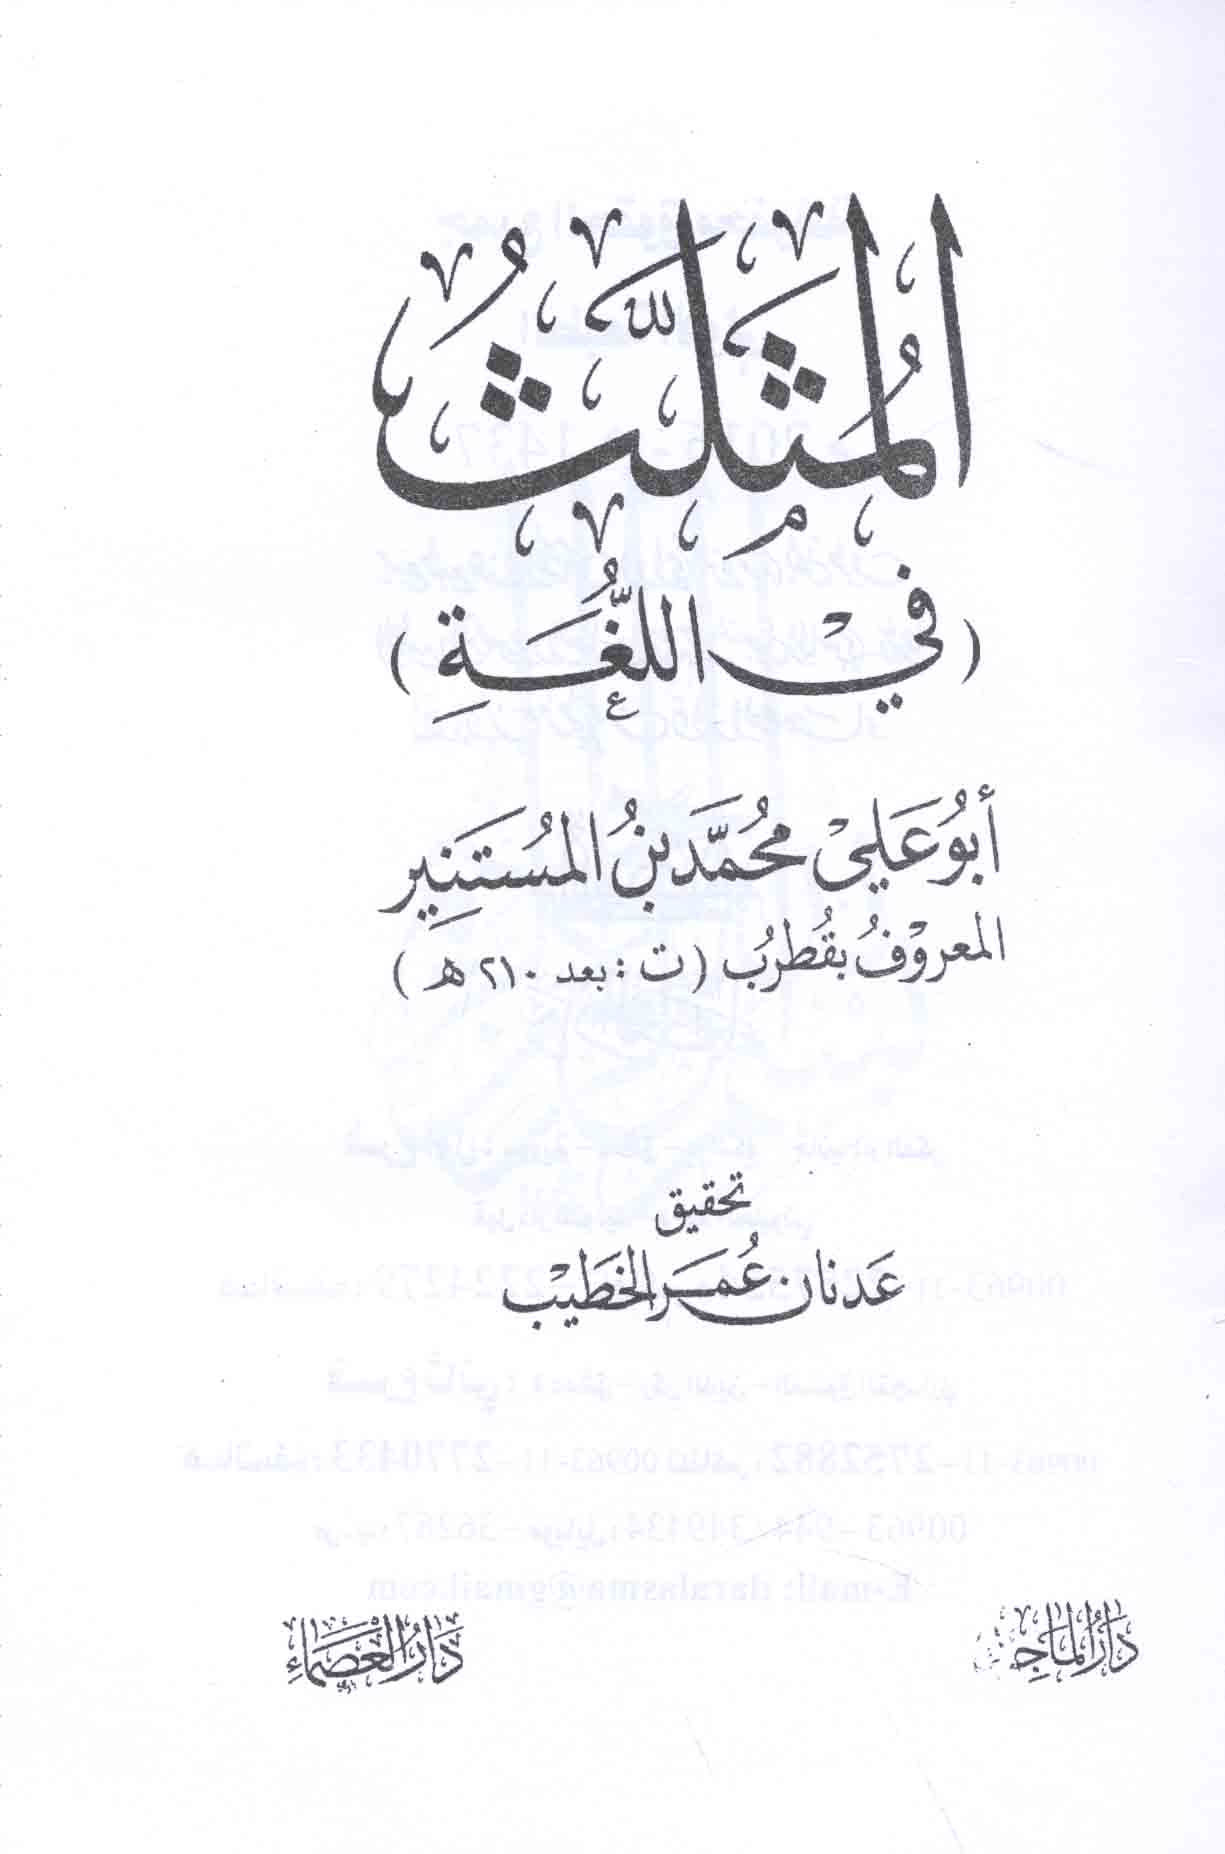 المُثَلَّثُ
(فِيْ اللُّغَةِ)
أبُو عَلِيْ مُحُمَّد بنُ المُسْتَنِير
المعروْفُ بقُطرُب (ت : بعد ٢١٠ هـ)
تحقيق
عَدنان عُمَر الخَطيْب
دَارُ المَاجِد دَارُ العَصْمَاءِ